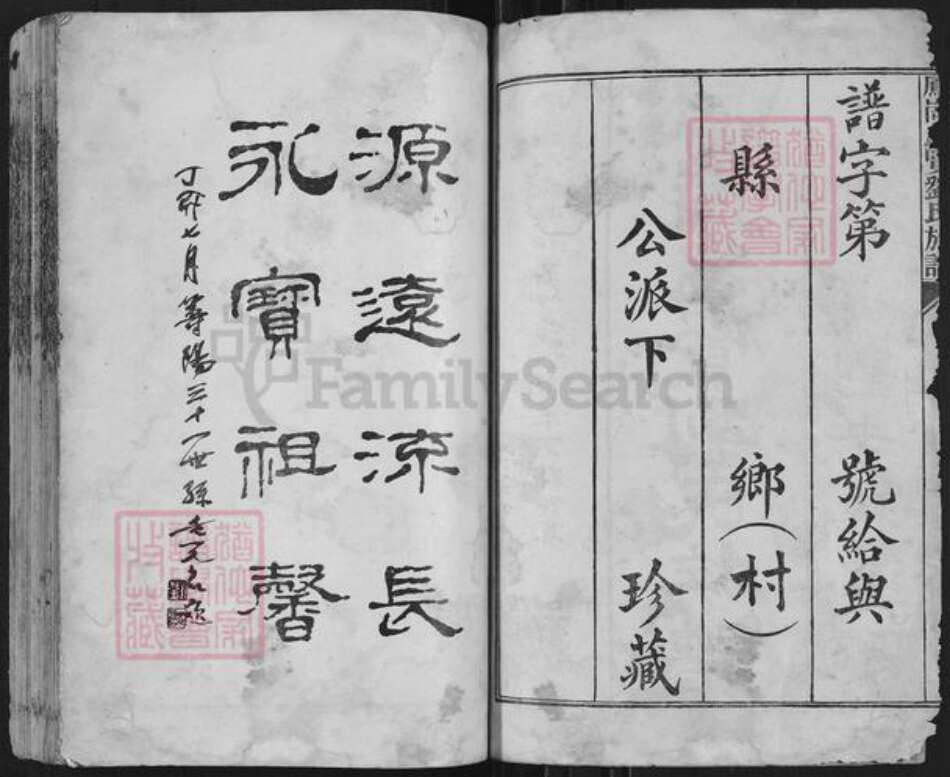 譜字第 號給與
縣 鄉(村)
公派下 珍藏
源遠流長
永寶祖馨
丁卯七月 三十一世孫
FamilySearch